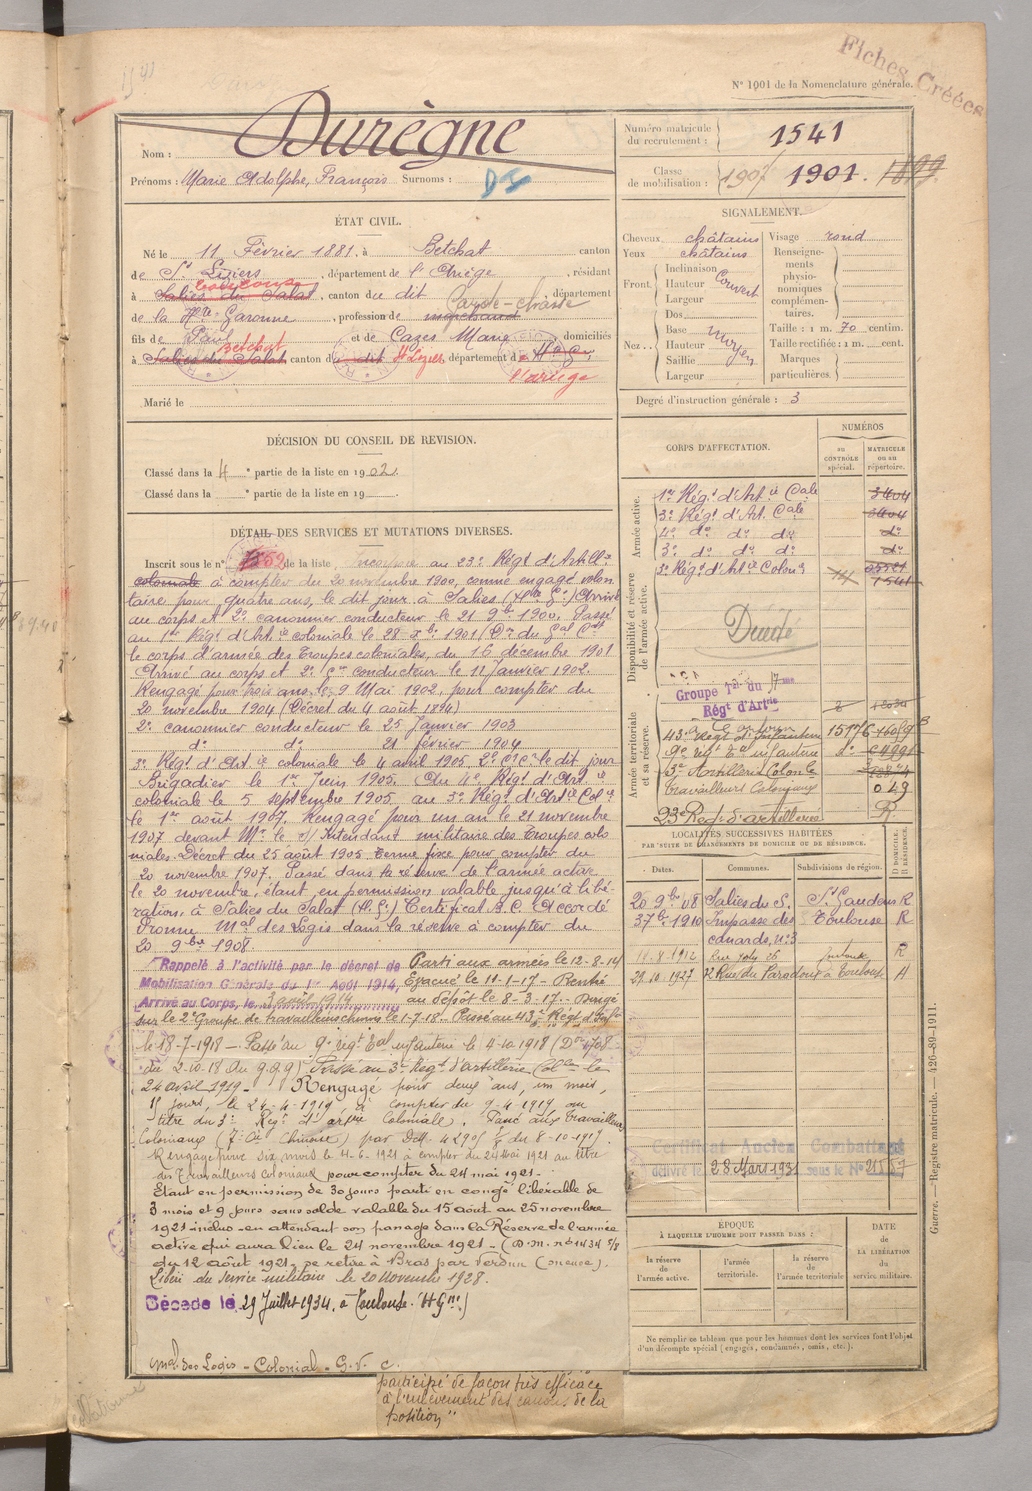 Fiches Créées
N° 1901 de la Nomenclature générale.
1541
Nom : Durègne
Prénoms : Marie Adolphe, François Surnoms :
Numéro matricule du recrutement : 1541
Classe de mobilisation : 1901. 1899
ÉTAT CIVIL.
Né le 11 Février 1881, à Betchat canton
de St Liziers, département de l'Ariège, résidant
à Salies du Salat, canton du dit, département
Toulouse
Garde-chasse
de la Hte Garonne, profession de
fils de Paul et de Cazes Marie domiciliés
Betchat
à Salies du Salat canton du dit St Lizier, département de Hte G.
l'ariège
Marié le
SIGNALEMENT.
Cheveux châtains
Yeux châtains
Front. Inclinaison
Hauteur Couvert
Largeur
Nez. Dos
Base
Hauteur moyen
Saillie
Largeur
Visage rond
Renseignements physionomiques complémentaires.
Taille : 1 m. 70 centim.
Taille rectifiée : 1 m. cent.
Marques particulières.
Degré d'instruction générale : 3
DÉCISION DU CONSEIL DE REVISION.
Classé dans la 4 e partie de la liste en 1902.
Classé dans la e partie de la liste en 19
DÉTAIL DES SERVICES ET MUTATIONS DIVERSES.
Inscrit sous le n° 52 de la liste, Incorporé au 23e Régt d'Artillie
coloniale à compter du 20 novembre 1900, comme engagé volon
taire pour quatre ans, le dit jour à Salies (Hte Gne) Arrivé
au corps et 2e canonnier conducteur le 21 9bre 1900. Passé
au 1er Régt d'Artie coloniale le 28 Xbre 1901 (On du Gal Ct
le corps d'armée des Troupes coloniales, du 16 décembre 1901
Arrivé au corps et 2e Cer conducteur le 11 Janvier 1902.
Rengagé pour trois ans, le 9 Mai 1902, pour compter du
20 novembre 1904 (Décret du 4 août 1894)
2e canonnier conducteur le 25 Janvier 1903
do do 21 février 1904
3e Régt d'Artie coloniale le 4 avril 1905. 2e Cr Cr le dit jour
Brigadier le 1er Juin 1905. Au 4e Régt d'Artie
coloniale le 5 septembre 1905. au 3e Régt d'Artie Colle
le 1er août 1907. Rengagé pour un an le 21 novembre
1907 devant Mr le s/Intendant militaire des Troupes colo
niales. Décret du 25 août 1905. Terme fixe pour compter du
20 novembre 1907. Passé dans la réserve de l'armée active
le 20 novembre, étant en permission valable jusqu'à libé-
ration. à Salies du Salat (H. G.) Certificat B. C. Accordé
Promu Mal des Logis dans la réserve à compter du
20 9bre 1908.
Rappelé à l'activité par le décret de
Mobilisation Générale du 1er Août 1914,
Arrivé au Corps, le 3 août 1914
Parti aux armées le 12-8-14
Évacué le 11-1-17 - Rentré
au dépôt le 8-3-17 - Dirigé
sur le 2e Groupe de travailleurs chinois le 1-7-18 - Passé au 43e Régt d'Infie
le 18-7-1918 - Passé au 9e régt Eal infanterie le 4-10-1918 (
du 2-10-18 Du G.Q.G) Passé au 3e Régt d'artillerie Colle le
24 avril 1919 - Rengagé pour deux ans, un mois,
15 jours, le 24-4-1919, à compter du 9-4-1919 au
titre du 3e Régt d'artie Coloniale. Passé aux Travailleurs
Coloniaux (7e Cie Chinoise) par Déc 4290 du 8-10-1919.
Rengagé pour six mois le 4-6-1921 à compter du 24 mai 1921 au titre
des Travailleurs Coloniaux pour compter du 24 mai 1921 -
Étant en permission de 30 jours parti en congé libérable de
3 mois et 9 jours sans solde valable du 15 août au 25 novembre
1921 inclus - en attendant son passage dans la Réserve de l'armée
active qui aura lieu le 24 novembre 1921 - (D.M. no 1434 5/8
du 12 août 1921, se retire à Bras par Verdun (Meuse).
Libéré du service militaire le 20 novembre 1928.
Décédé le 29 Juillet 1934, à Toulouse. (H Gne)
Mal des Logis - Colonial - G. V. C.
participé de façon très efficace
à l'enlèvement des canons de la
position"
CORPS D'AFFECTATION.
NUMÉROS
au CONTRÔLE spécial.
MATRICULE ou au répertoire.
Armée active.
1er Régt d'Artie Cale 3404
3e Régt d'Art. Cale 6404
4e do do do do
3e do do do do
Disponibilité et réserve de l'armée active.
3e Régt d'Artie Colone
1541
Armée territoriale et sa réserve.
Groupe Tal du 7me
Régt d'Artie
43e Régt d'Infanterie
9e régt Eal infanterie do
3e Artillerie Colonle
Travailleurs Coloniaux 049
23e Regt d'artillerie R
LOCALITÉS SUCCESSIVES HABITÉES
PAR SUITE DE CHANGEMENTS DE DOMICILE OU DE RÉSIDENCE.
Dates. Communes. Subdivisions de région. D DOMICILE. R RÉSIDENCE.
20 9bre 08 Salies du S. St Gaudens R
3 7bre 1910 Impasse des canards, n:3 Toulouse R
11.8.1912 Rue Joly 26 Toulouse R
29.10.1927 2 Rue du Paradoux à Toulouse
Certificat Ancien Combattant
délivré le 28 Mars 1931 sous le No 21557
ÉPOQUE
À LAQUELLE L'HOMME DOIT PASSER DANS :
la réserve de l'armée active.
l'armée territoriale.
la réserve de l'armée territoriale
DATE de LA LIBÉRATION du service militaire.
Ne remplir ce tableau que pour les hommes dont les services font l'objet
d'un décompte spécial (engagés, condamnés, omis, etc.).
Guerre. — Registre matricule. — 426-89-1911.